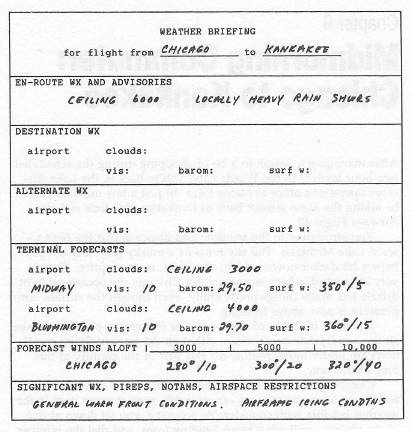 WEATHER BRIEFING
for flight from CHICAGO to KANKAKEE
EN-ROUTE WX AND ADVISORIES
CEILING 6000 LOCALLY HEAVY RAIN SHWRS
DESTINATION WX
airport clouds:
vis: barom: surf w:
ALTERNATE WX
airport clouds:
vis: barom: surf w:
TERMINAL FORECASTS
airport clouds: CEILING 3000
MIDWAY vis: 10 barom: 29.50 surf w: 350°/5
airport clouds: CEILING 4000
BLOOMINGTON vis: 10 barom: 29.70 surf w: 360°/15
FORECAST WINDS ALOFT | 3000 | 5000 | 10,000
CHICAGO 280°/10 300°/20 320°/40
SIGNIFICANT WX, PIREPS, NOTAMS, AIRSPACE RESTRICTIONS
GENERAL WARM FRONT CONDITIONS. AIRFRAME ICING CONDTNS